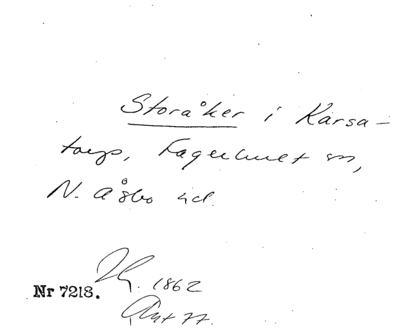 Storåker i Karsa-
torp, Fagerhult sn,
N. Åsbo hd.
1862
Nr 7218.